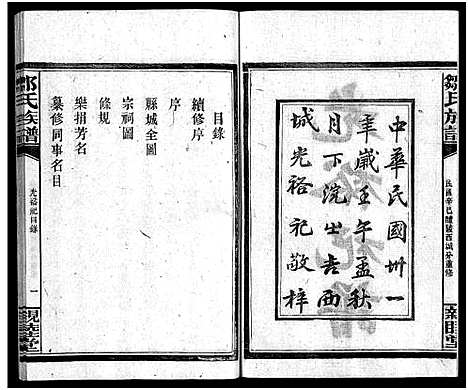 鄒氏族譜
民國辛巳醴陵西城分重修
親睦堂
中華民國卅一
年歲壬午孟秋
月下浣之吉西
城光裕祀敬梓
目錄
續修序
序
縣城全圖
宗祠圖
條規
樂捐芳名
纂修同事名目
鄒氏族譜
光裕祀目錄
一
親睦堂